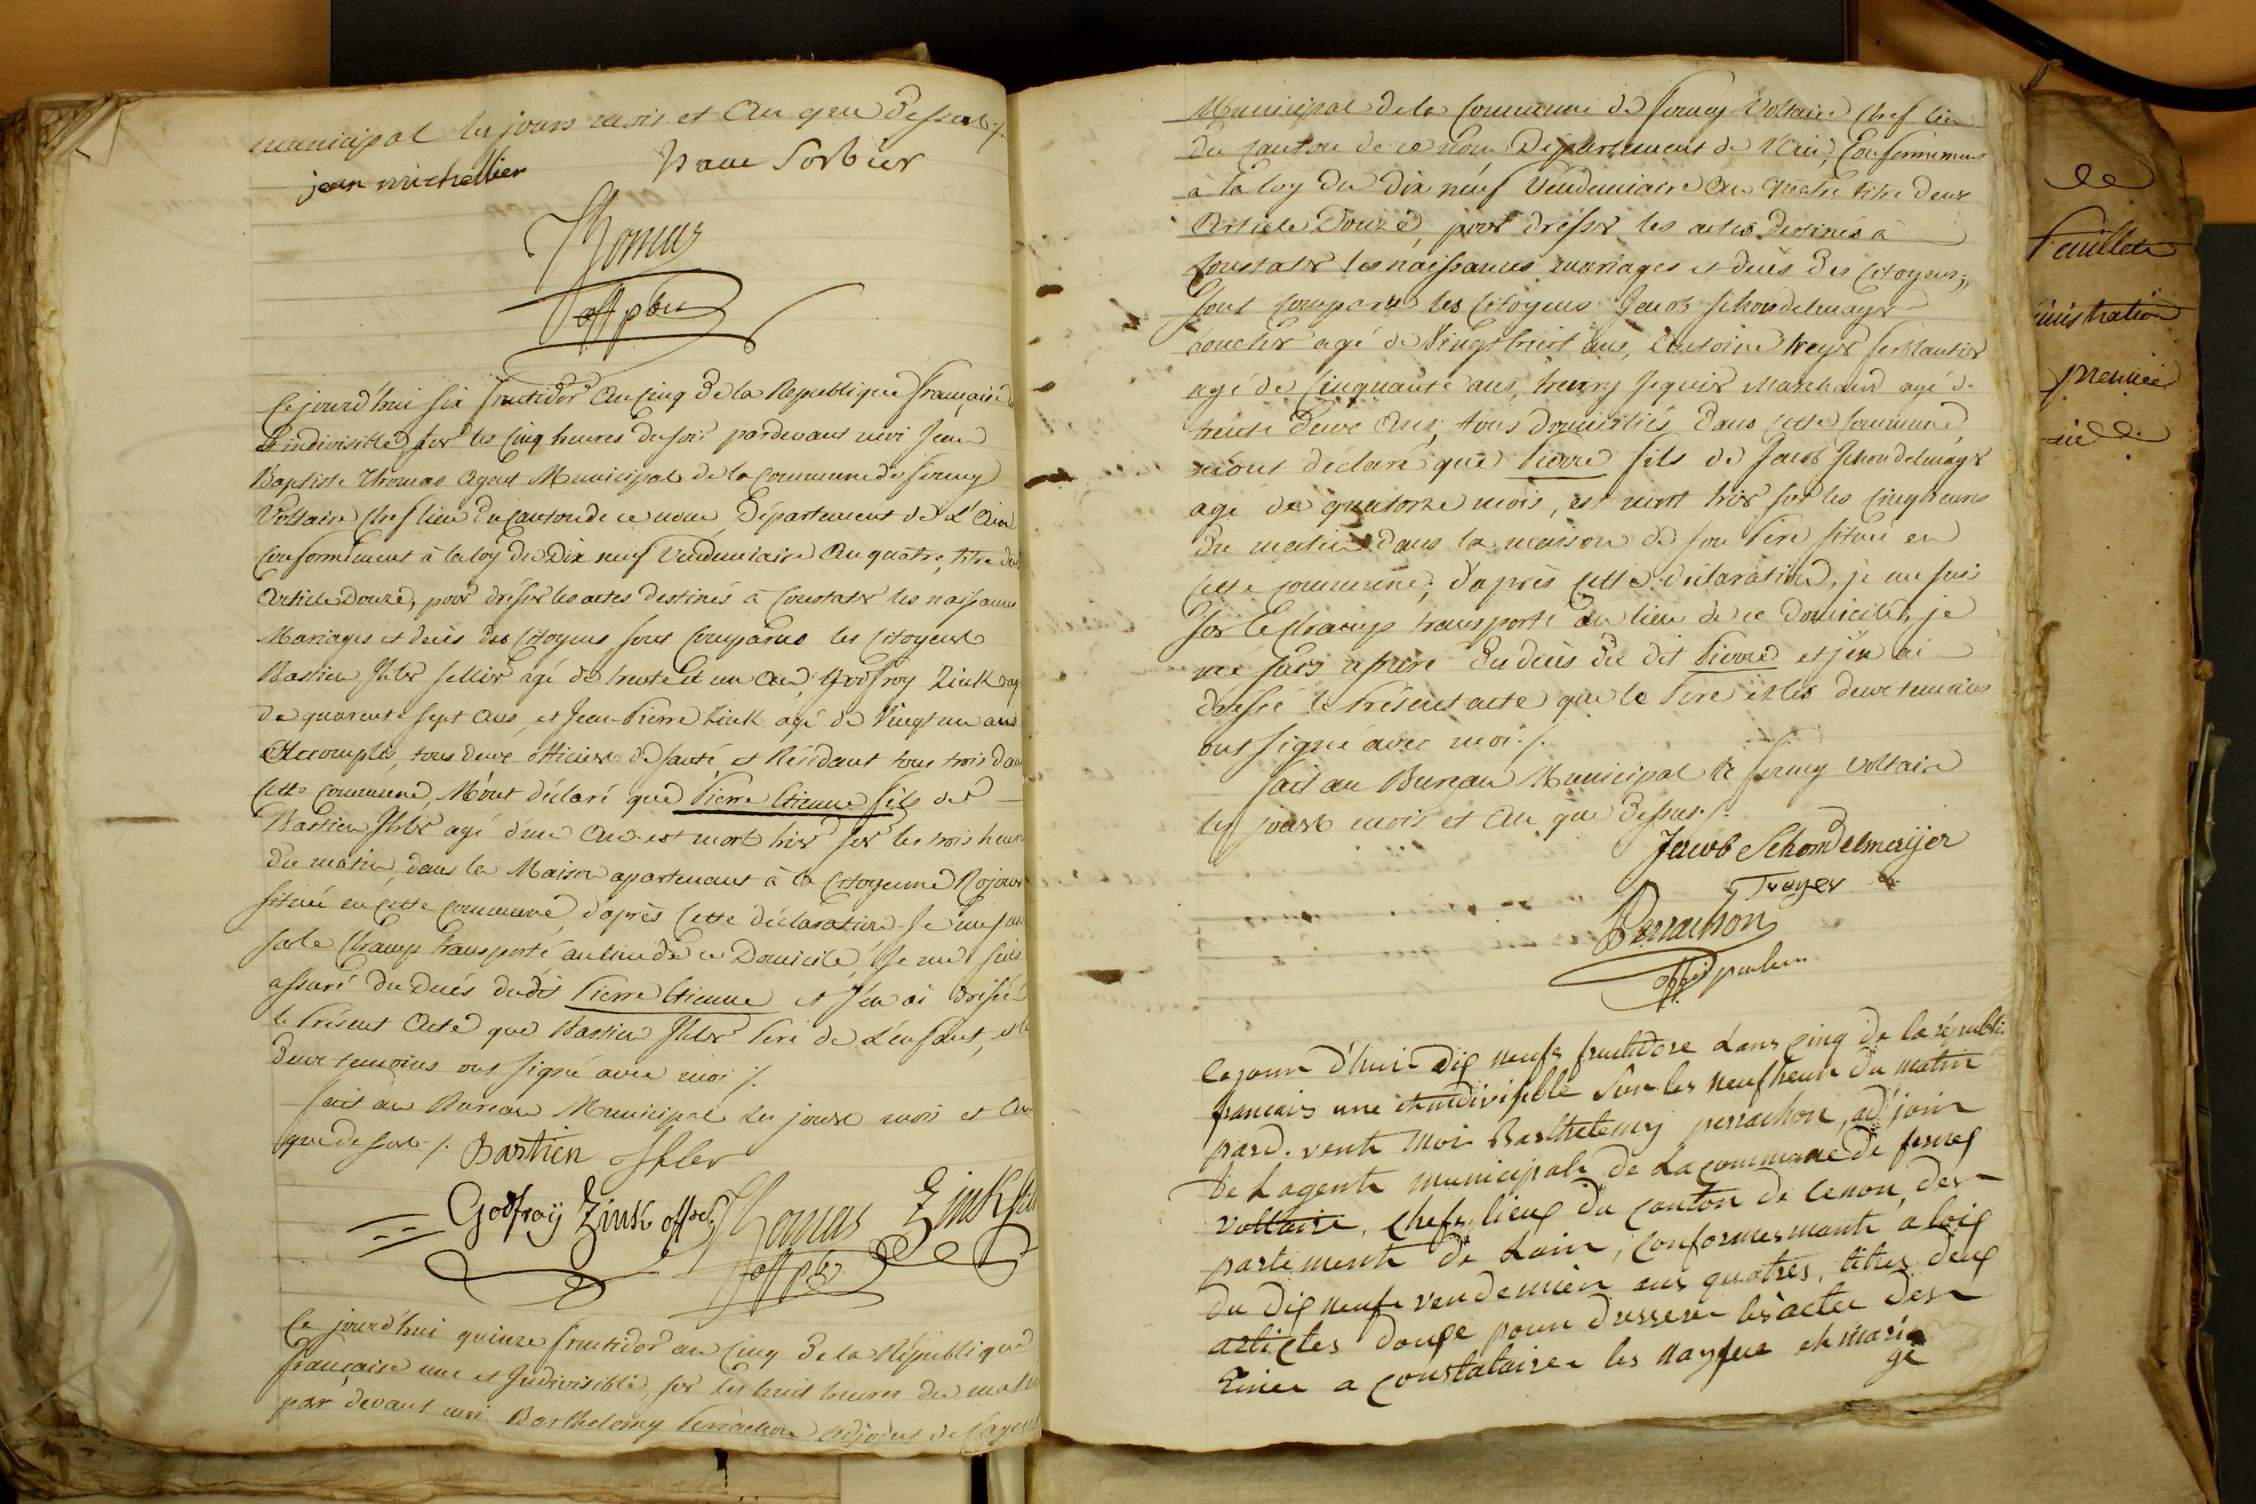 municipal les jours mois et an que dessus ./.
jean michellier
Sorbier
Thomas
off pbu
Ce jourd'hui six fructidor an Cinq de la Republique française
& indivisible, sur les Cinq heures du soir pardevant moi Jean
Baptiste Thomas Agent Municipal de la Commune de ferney
Voltaire Chef lieu du Canton de ce nom, Département de L'Ain
Conformément à la loy du Dix neuf Vendemiaire An quatre, titre deux
Article Douze, pour dresser les actes destinés à Constater les naissances
Mariages et decès des Citoyens sont Comparus les Citoyens
Bastien sellier agé de trente et un An, Godfroy Zink agé
de quarente sept ans, et Jean Pierre Zink agé de Vingt un ans
Accomplis, tous deux officiers de santé et Résidant tous trois dans
Cette Commune, M'ont déclaré que Pierre Etienne fils de
Bastien agé d'un An est mort hier sur les trois heures
du matin, dans la Maison apartenant à la Citoyenne Rojoux
située en cette commune, d'après Cette déclaration Je me suis
sur le Champ transporté au lieu de ce Domicile, Je me suis
assuré du Decès dudit Pierre Etienne et J'en ai dressé
le Présent Acte que Bastien Pere de L'enfant, et les
deux temoins ont signé avec moi ./.
fait au Bureau Municipal les jours mois et An
que dessus ./. Bastien
Godfroÿ Zink off Thomas Zink fils
off pbu
Ce jourd'hui quinze fructidor an Cinq de la République
française une et Indivisible, sur les huit heures du matin
par devant moi Barthelemy Perrachon adjoint de l'agent
Municipal de la Commune de ferney Voltaire Chef lieu
du Canton de ce nom Département de l'Ain, Conformemens
à la loy du Dix neuf Vendemiaire An Quatre titre deux
Article Douze, pour dresser les actes destinés à
Constater les naissances mariages et decès des Citoyens,
sont comparus les Citoyens Jacob Schondelmayer
agé de Vingt huit ans, Antoine treyer ferblantier
agé de Cinquante ans, henry Jequier Marchand agé de
trente deux Ans, tous domiciliés dans cette Commune,
m'ont déclaré que Pierre fils de Jacob Schondelmayer
agé de quatorze mois, est mort hier sur les cinq heures
du matin dans la maison de son Pere située en
cette commune, d'après cette déclaration, je me suis
sur le champ transporté au lieu de ce Domicile, je
me suis assuré du decès du dit Pierre et j'en ai
dressé le Présent acte que le Pere et les deux temoins
ont signé avec moi ./.
fait au Bureau Municipal de ferney Voltaire
les jours mois et An que dessus ./.
Jacob Schondelmeijer
Treyer
Perrachon
ce jour d'hui dix neufs fructidore Lans cinq de la républi
francais une et indivisible Sur les neuf heure du matin
pard. vente moi Barthelemy perrachon, ad'join
de Lagente municipale de La commune de ferney
voltaire, chefs lieux du canton de cenon, des
partemente de Lain, conformesmante a loix
du dix neufe vendemien ans quatres, titres deux
articles douze pour dresserre les acte des
tinee a constatairee les naysue et mariage
ee
feuillete
inistration
premiee